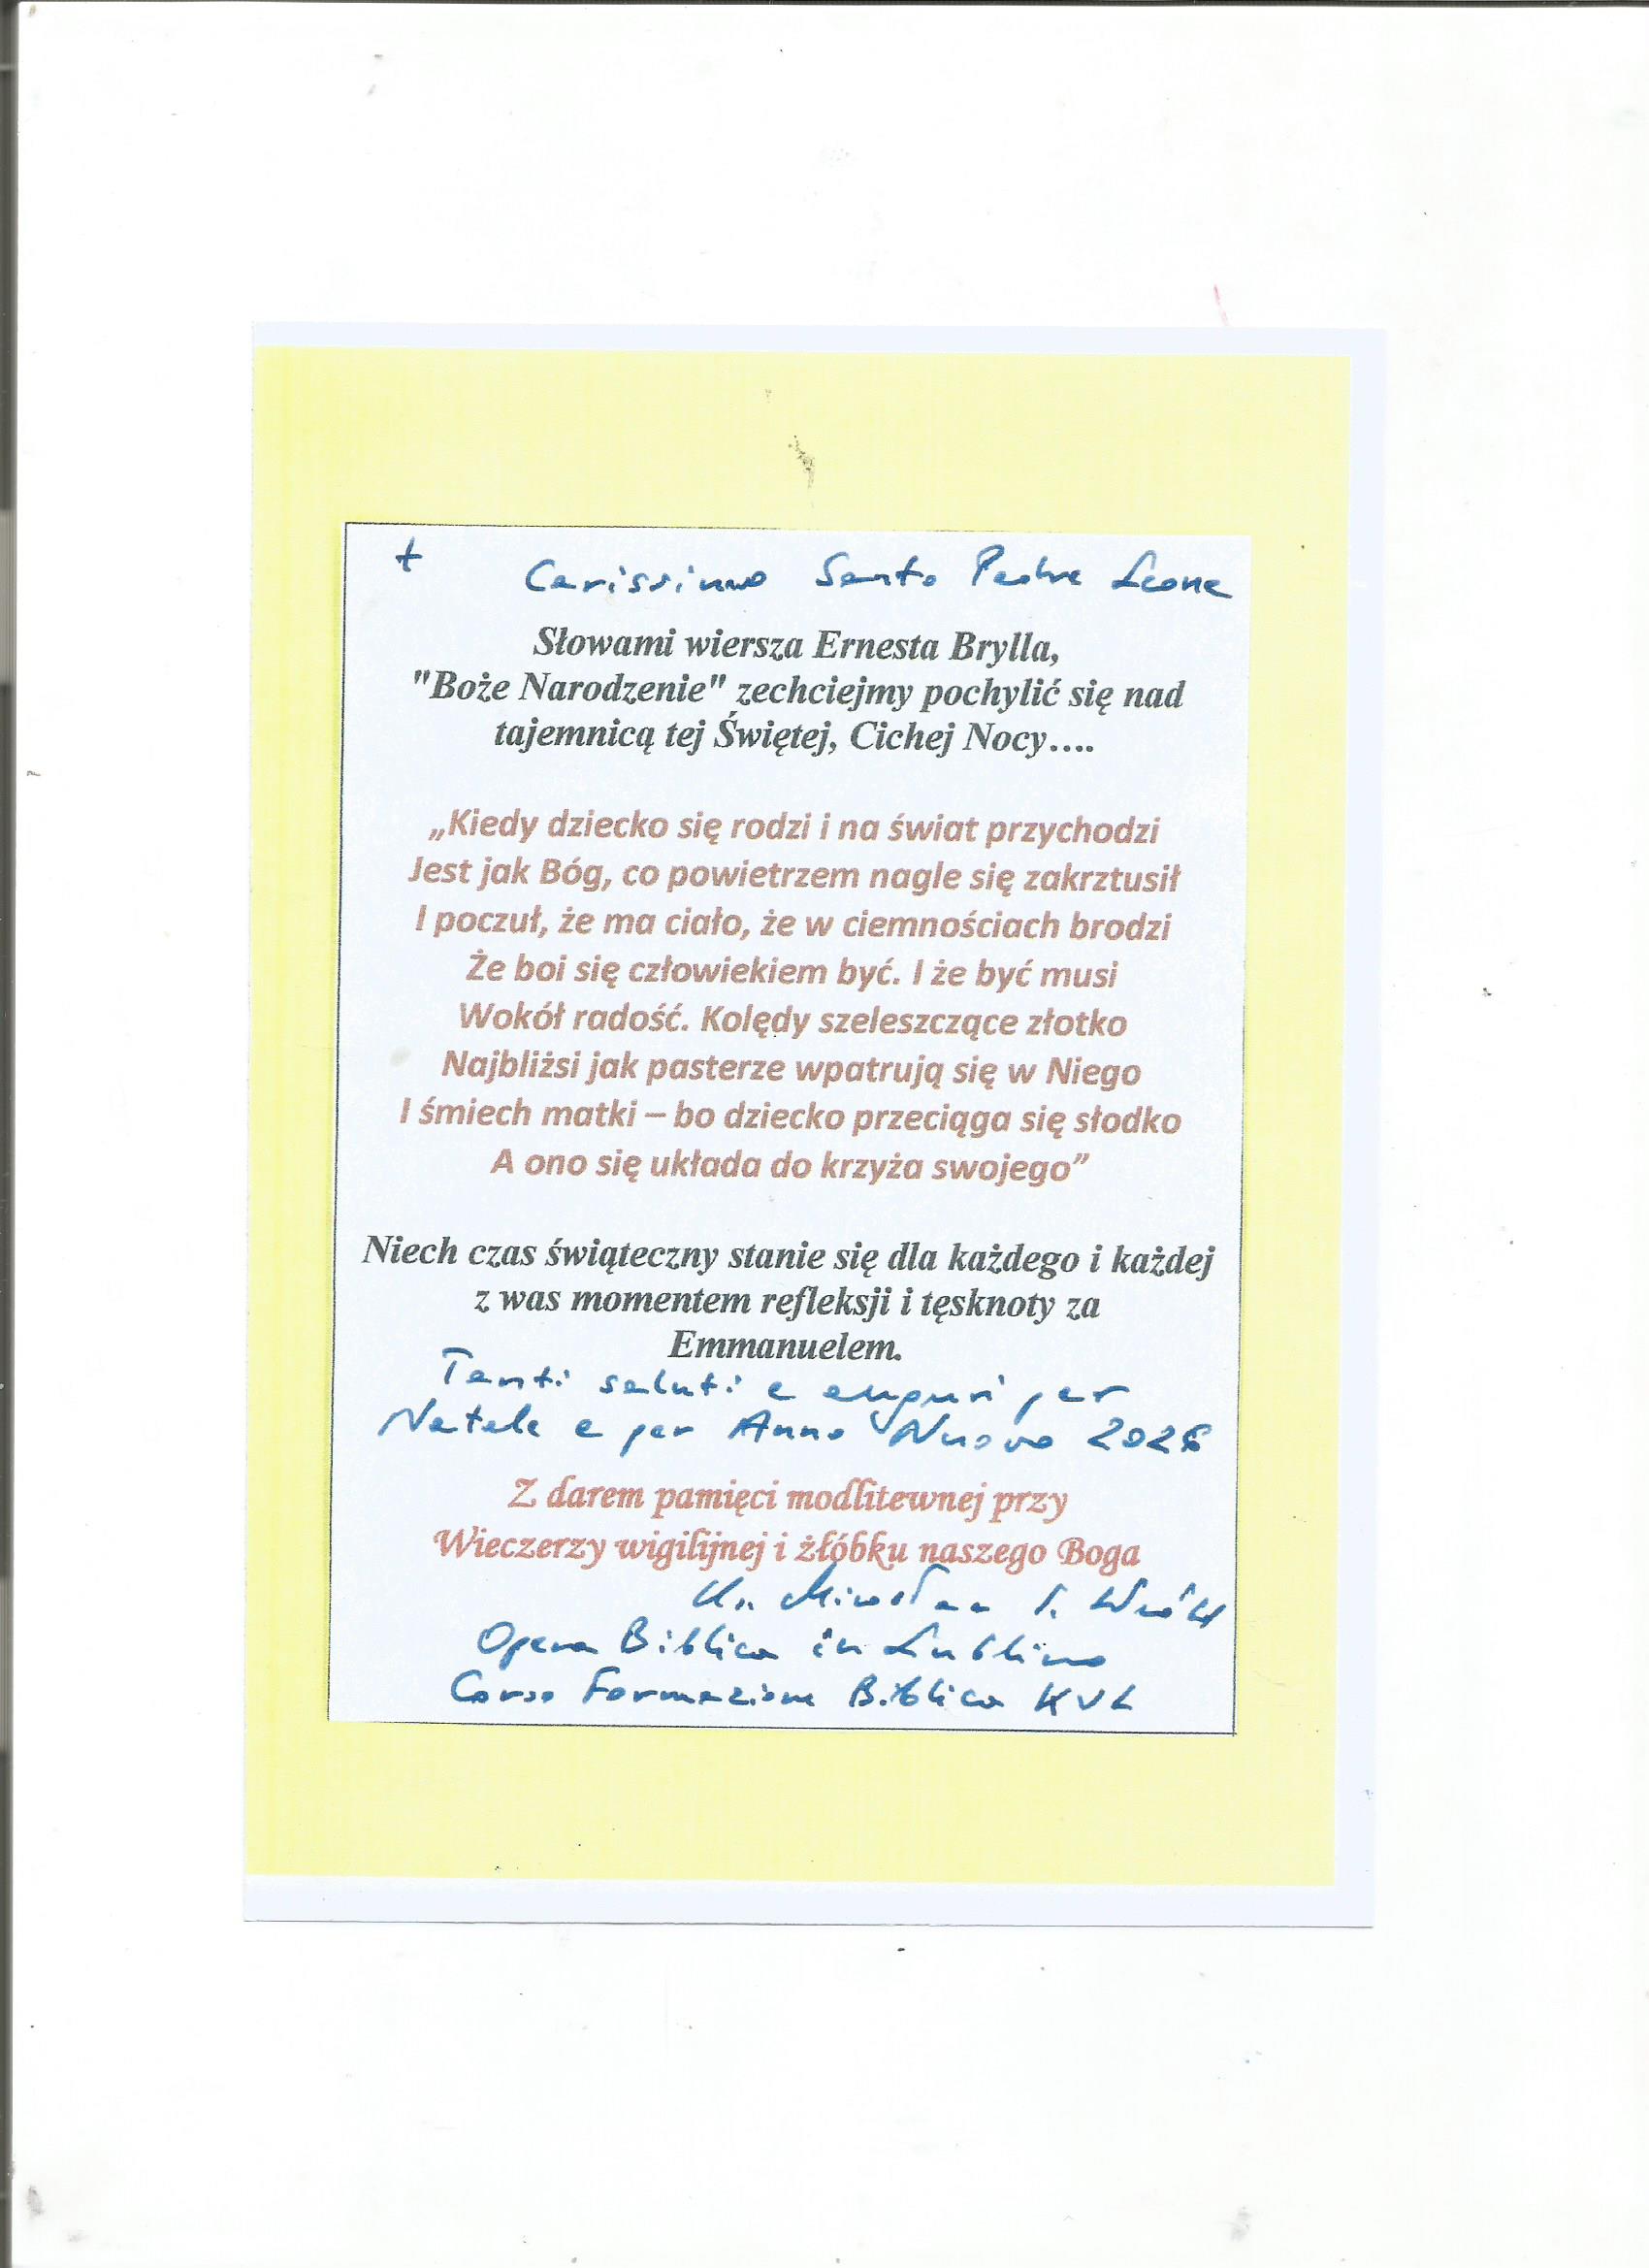 + Carissimo Santo Padre Leone
Słowami wiersza Ernesta Brylla,
"Boże Narodzenie" zechciejmy pochylić się nad
tajemnicą tej Świętej, Cichej Nocy….
„Kiedy dziecko się rodzi i na świat przychodzi
Jest jak Bóg, co powietrzem nagle się zakrztusił
I poczuł, że ma ciało, że w ciemnościach brodzi
Że boi się człowiekiem być. I że być musi
Wokół radość. Kolędy szeleszczące złotko
Najbliżsi jak pasterze wpatrują się w Niego
I śmiech matki – bo dziecko przeciąga się słodko
A ono się układa do krzyża swojego”
Niech czas świąteczny stanie się dla każdego i każdej
z was momentem refleksji i tęsknoty za
Emmanuelem.
Tanti saluti e auguri per
Natale e per Anno Nuovo 2026
Z darem pamięci modlitewnej przy
Wieczerzy wigilijnej i żłóbku naszego Boga
Ks. Mirosław S. Wróbel
Opera Biblica in Lublino
Corso Formazione Biblica KUL